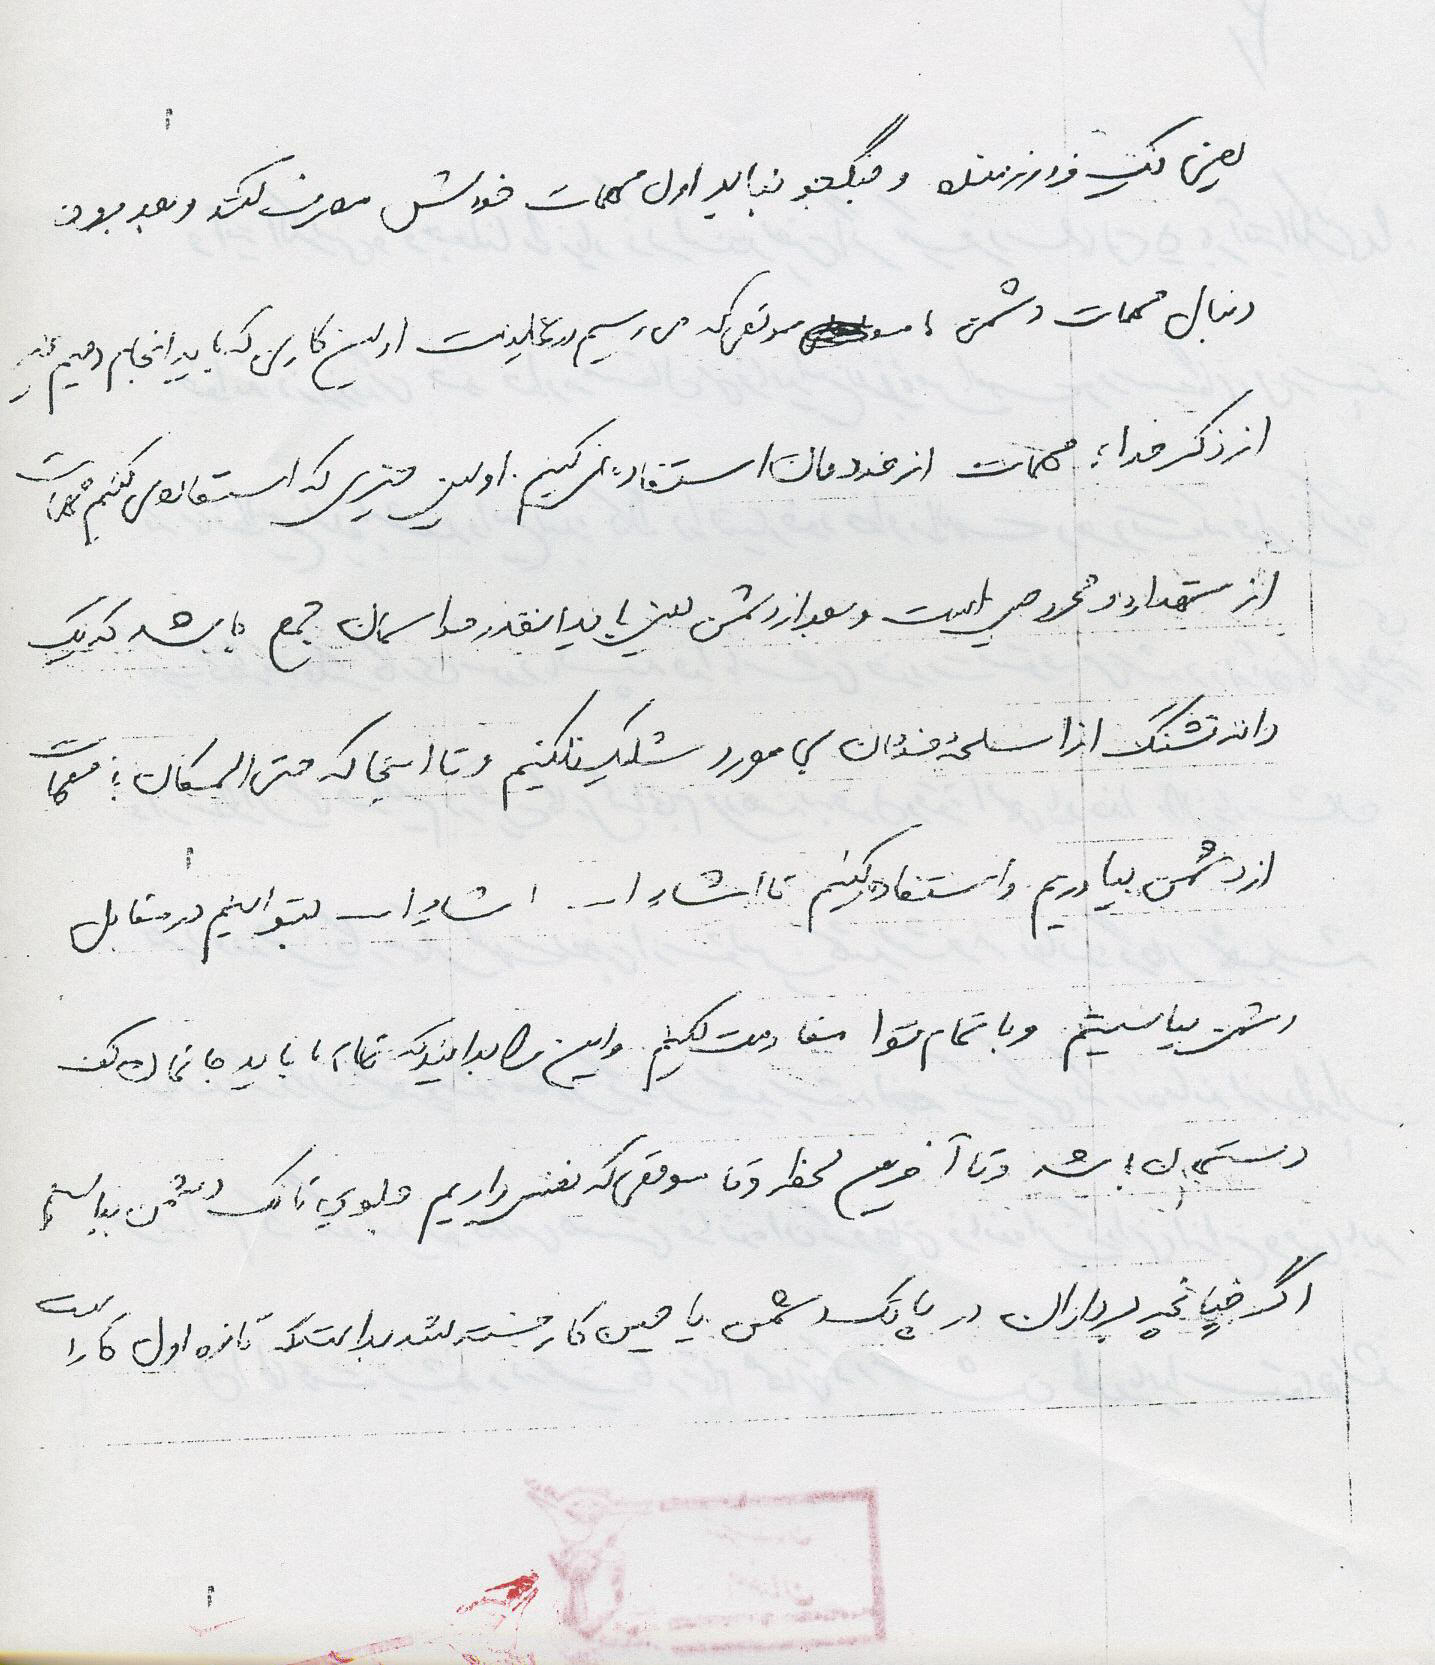 یعنی یک فرد رزمنده و جنگجو نباید اول مهمات خودش مصرف بکند و بعد برود
دنبال مهمات دشمن ما موقعی که می رسیم در عملیات اولین کاری که باید انجام دهیم غیر
از ذکر خدا؛ مهمات از خودمان استفاده نمی کنیم. اولین چیزی که استفاده می کنیم مهمات
از شهدا و مجروحین است و بعد از دشمن یعنی باید اینقدر حواسمان جمع باشد که یک
دانه تشنگ از اسلحه خودمان بی مورد شلیک نکنیم و تا اینجا که حتی المکان؛ مهمات
از دشمن بیاوریم و استفاده بکنیم تا انشاءا... انشاءا... بتوانیم در مقابل
دشمن بیاستیم و با تمام قوا مقاومت بکنیم. و این را بدانید که تمام ما باید جانمان کف
دستمان باشد و تا آخرین لحظه و تا موقعی که نفس داریم جلوی تانک دشمن بیاستیم
اگر چنانچه برادران در پاتک دشمن یا حین کار خسته شد بدانند که تازه اول کار است